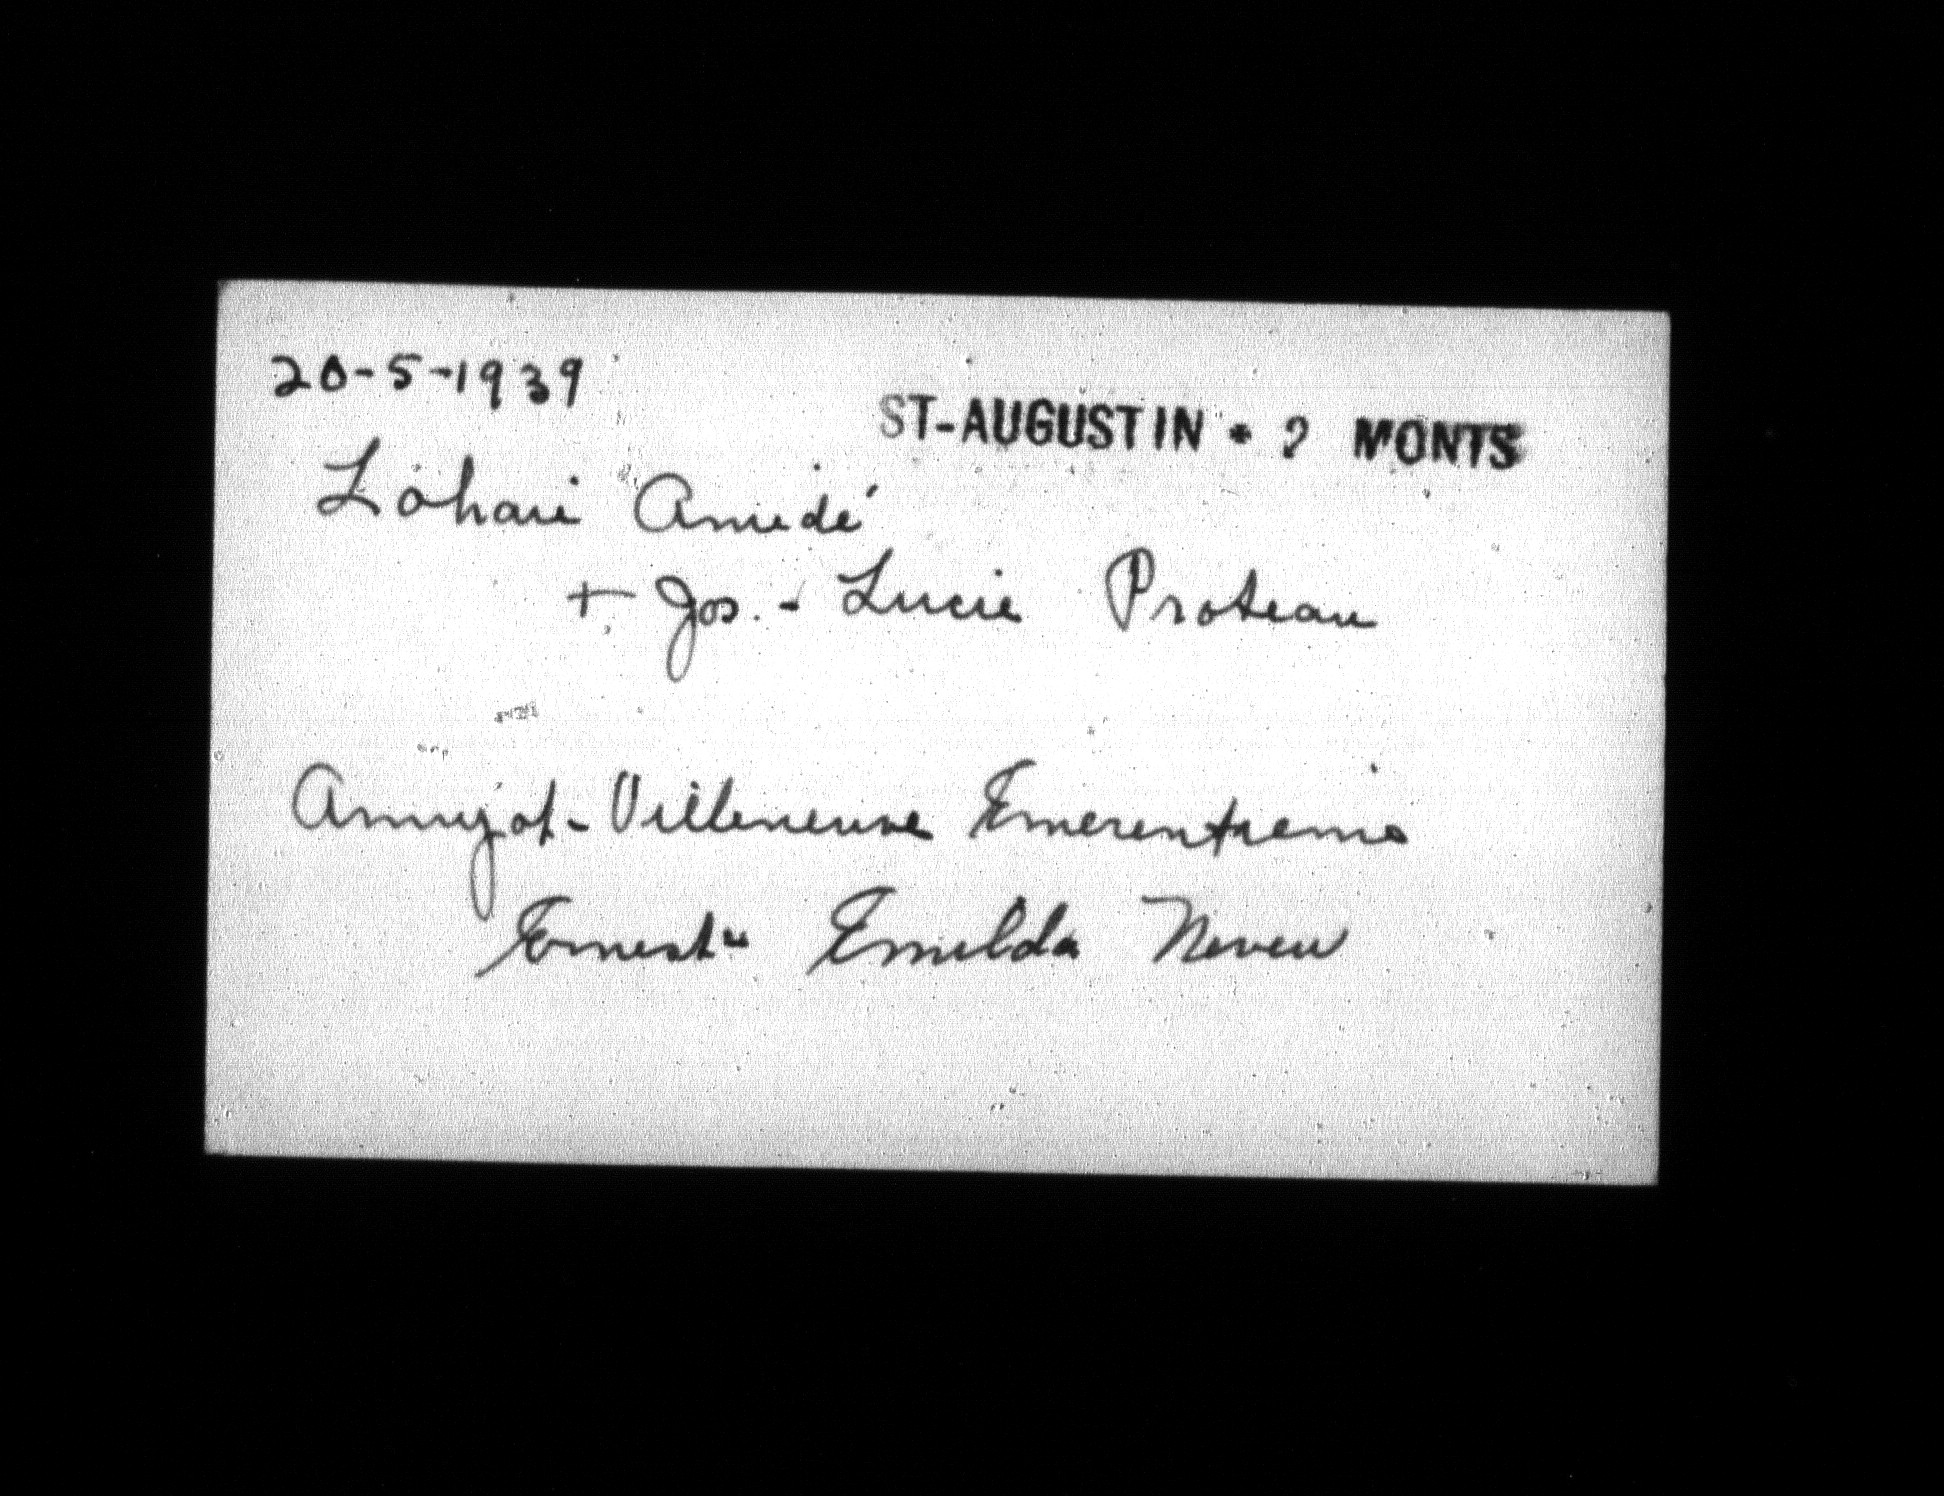 20-5-1939
ST-AUGUSTIN * 2 MONTS
Lahaie Amédé
+ Jos. - Lucie Proteau
Amyot-Villeneuve Emerentienne
Ernest - Emelda Neveu